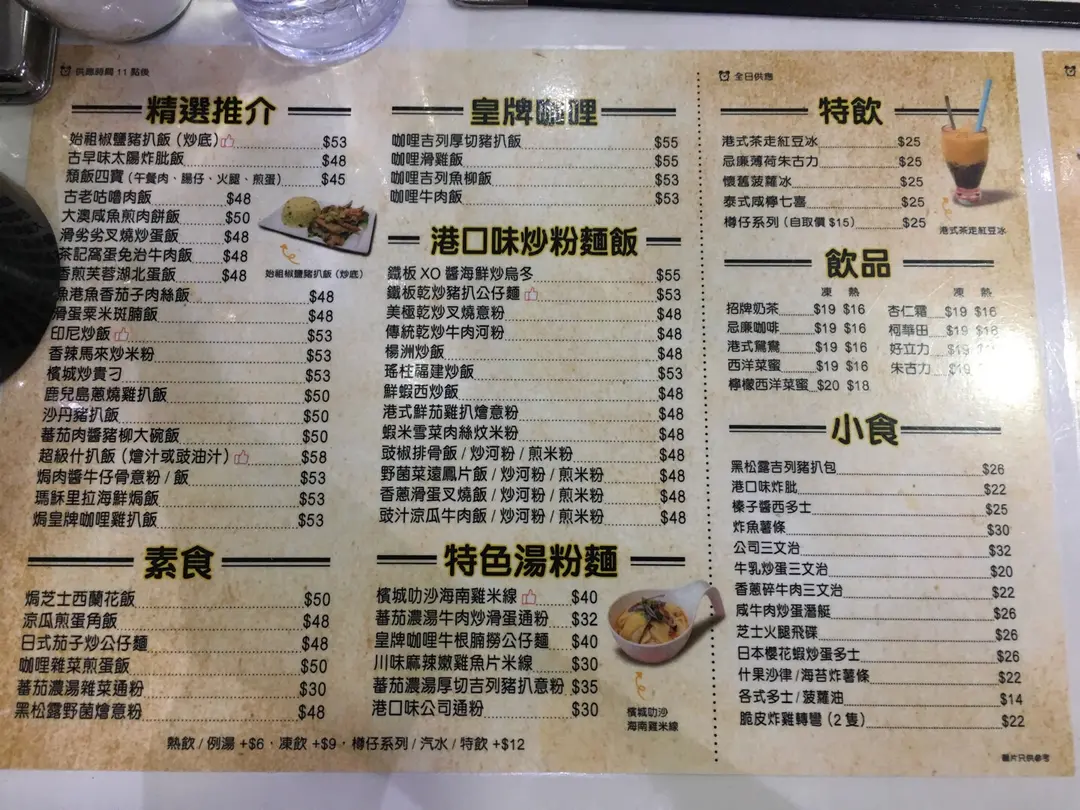 供應時間 11 點後
精選推介
始祖椒鹽豬扒飯 (炒底) $53
古早味太陽炸肶飯 $48
頹飯四寶 (午餐肉、腸仔、火腿、煎蛋) $45
古老咕嚕肉飯 $48
大澳咸魚煎肉餅飯 $50
滑劣劣叉燒炒蛋飯 $48
茶記窩蛋免治牛肉飯 $48
香煎芙蓉湖北蛋飯 $48
漁港魚香茄子肉絲飯 $48
滑蛋粟米斑腩飯 $48
印尼炒飯 $53
香辣馬來炒米粉 $53
檳城炒貴刁 $53
鹿兒島蔥燒雞扒飯 $50
沙丹豬扒飯 $50
蕃茄肉醬豬柳大碗飯 $50
超級什扒飯 (燴汁或豉油汁) $58
焗肉醬牛仔骨意粉 / 飯 $53
瑪穌里拉海鮮焗飯 $53
焗皇牌咖哩雞扒飯 $53
始祖椒鹽豬扒飯 (炒底)
素食
焗芝士西蘭花飯 $50
涼瓜煎蛋角飯 $48
日式茄子炒公仔麵 $48
咖哩雜菜煎蛋飯 $50
蕃茄濃湯雜菜通粉 $30
黑松露野菌燴意粉 $48
皇牌咖哩
咖哩吉列厚切豬扒飯 $55
咖哩滑雞飯 $55
咖哩吉列魚柳飯 $53
咖哩牛肉飯 $53
港口味炒粉麵飯
鐵板 XO 醬海鮮炒烏冬 $55
鐵板乾炒豬扒公仔麵 $53
美極乾炒叉燒意粉 $48
傳統乾炒牛肉河粉 $48
楊洲炒飯 $48
瑤柱福建炒飯 $53
鮮蝦西炒飯 $48
港式鮮茄雞扒燴意粉 $48
蝦米雪菜肉絲炆米粉 $48
豉椒排骨飯 / 炒河粉 / 煎米粉 $48
野菌菜遠鳳片飯 / 炒河粉 / 煎米粉 $48
香蔥滑蛋叉燒飯 / 炒河粉 / 煎米粉 $48
豉汁涼瓜牛肉飯 / 炒河粉 / 煎米粉 $48
特色湯粉麵
檳城叻沙海南雞米線 $40
蕃茄濃湯牛肉炒滑蛋通粉 $32
皇牌咖哩牛根腩撈公仔麵 $40
川味麻辣嫩雞魚片米線 $30
蕃茄濃湯厚切吉列豬扒意粉 $35
港口味公司通粉 $30
檳城叻沙
海南雞米線
熱飲 / 例湯 +$6，凍飲 +$9，樽仔系列 / 汽水 / 特飲 +$12
全日供應
特飲
港式茶走紅豆冰 $25
忌廉薄荷朱古力 $25
懷舊菠蘿冰 $25
泰式咸檸七喜 $25
樽仔系列 (自取價 $15) $25
港式茶走紅豆冰
飲品
凍 熱
招牌奶茶 $19 $16
忌廉咖啡 $19 $16
港式鴛鴦 $19 $16
西洋菜蜜 $19 $16
檸檬西洋菜蜜 $20 $18
凍 熱
杏仁霜 $19 $16
柯華田 $19 $16
好立力 $19
朱古力 $19
小食
黑松露吉列豬扒包 $26
港口味炸肶 $22
榛子醬西多士 $25
炸魚薯條 $30
公司三文治 $32
牛乳炒蛋三文治 $20
香蔥碎牛肉三文治 $22
咸牛肉炒蛋潛艇 $26
芝士火腿飛碟 $26
日本櫻花蝦炒蛋多士 $26
什果沙律 / 海苔炸薯條 $22
各式多士 / 菠蘿油 $14
脆皮炸雞轉彎 (2 隻) $22
圖片只供參考